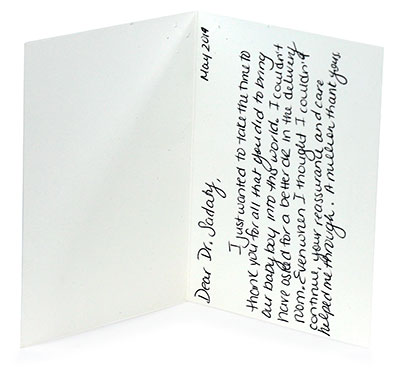 May 2019
Dear Dr. Sadaty,
I just wanted to take the time to
thank you for all that you did to bring
our baby boy into this world. I couldn't
have asked for a better DR in the delivery
room. Even when I thought I couldn't
continue, your reassurance and care
helped me through. A million thank yous